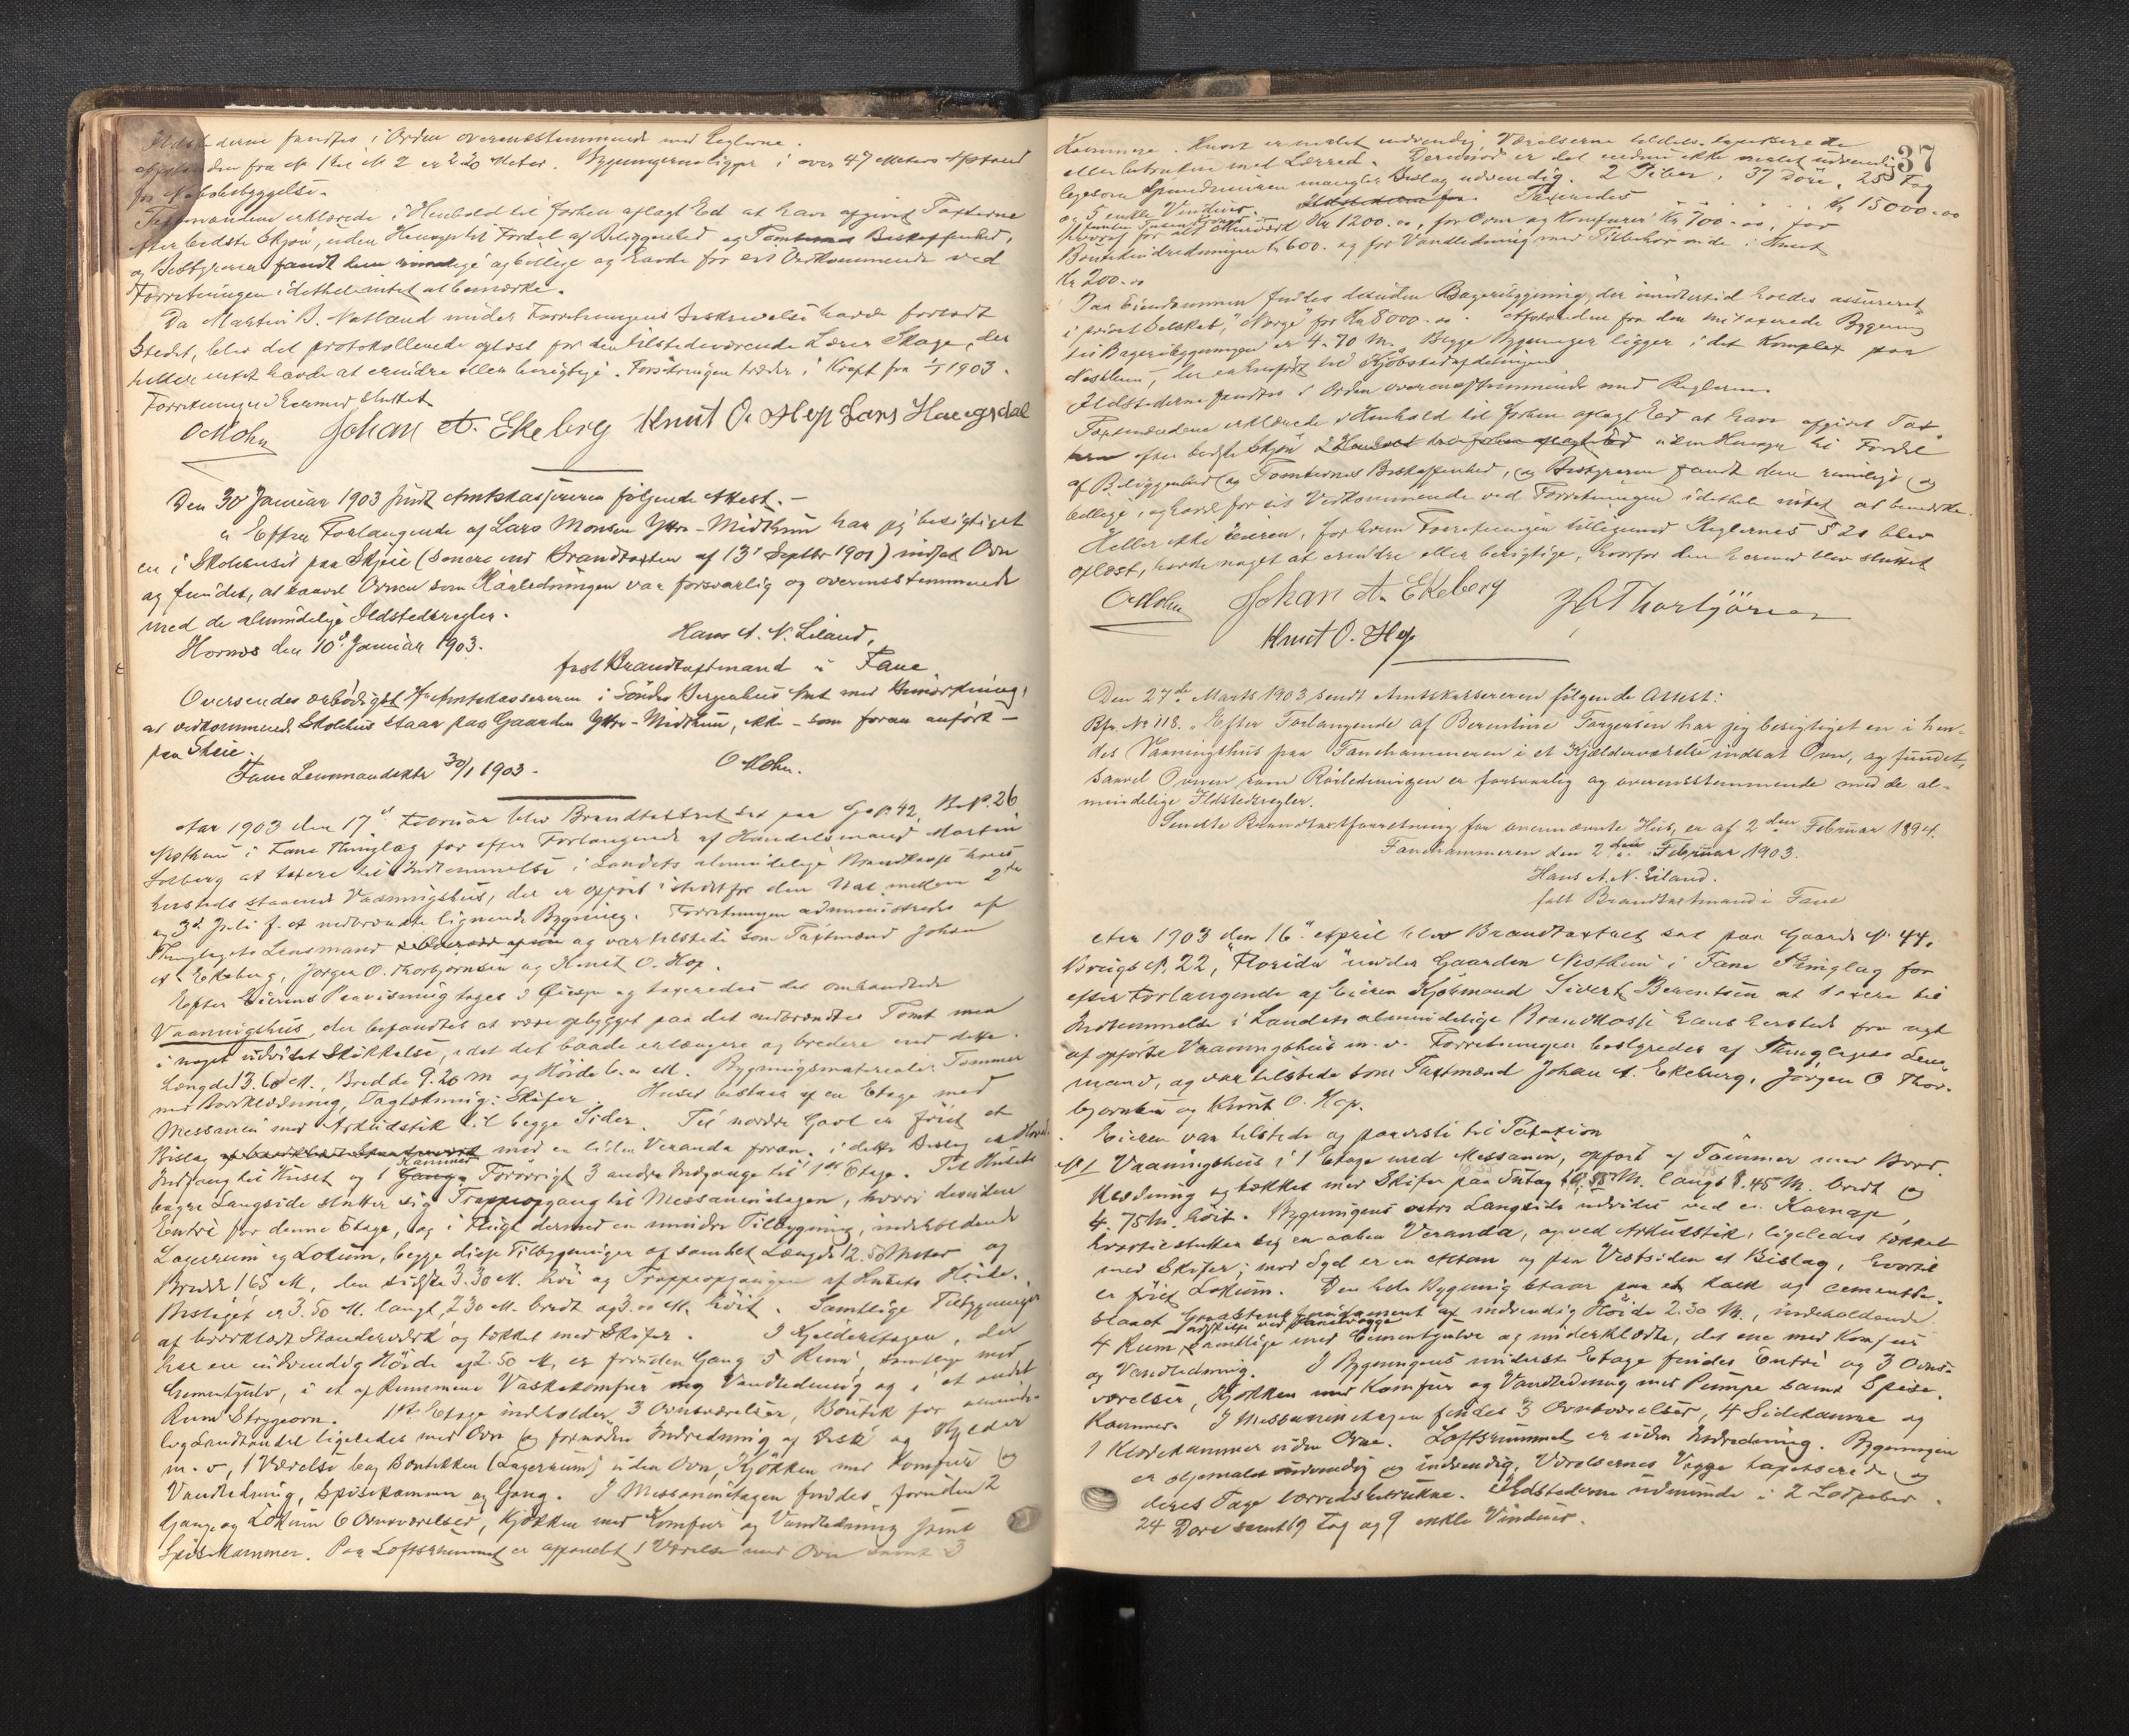 Ildstederne fandtes i Orden overensstemmende med Reglerne.
Afstanden fra N 1 til N 2 er 2.20 Meter. Bygningerne ligger i over 47 Meters Afstand
fra Nabobebyggelse.
Taxtmændene erklærede i Henhold til forhen aflagt Ed at have afgivet Taxterne
efter bedste Skjøn, uden Hensyn til Fordel af Beliggenhed og Tomternes Beskaffenhed,
og Bestyreren fandt dem rimelige og billige og havde for sit Vedkommende ved
Forretningen idethele intet at bemærke.
Da Martin J. Natland under Forretningens Beskrivelse havde forladt
Stedet, blev det protokollerede oplæst for den tilstedeværende Lærer Skage, der
heller intet havde at erindre eller berigtige. Forsikringen træder i Kraft fra 1/1 1903.
Forretningen hermed sluttet
O Mohn Johan A. Ekeberg Knut O. Hop Lars Haugsdal
Den 30 Januar 1903 sendt Amtskassereren følgende Attest. –
"Efter Forlangende af Lars Monsen Ytre-Midthun har jeg besigtiget
en i Skolehuset paa Skjeie (senere end Brandtaxten af 13' Septbr 1901) indsat Ovn
og fundet, at saavel Ovnen som Rørledningen var forsvarlig og overensstemmende
med de almindelige Ildstedsregler.
Hornes den 10' Januar 1903.
Hans A. N. Liland,
fast Brandtaxtmand i Fane
Oversendes ærbødigst Hr Amtskassereren i Søndre Bergenhus Amt med Bemærkning,
at vedkommende Skolehus staar paa Gaarden Ytre-Midthun, ikke – som foran anført –
paa Skeie.
Fane Lensmandsktr 30/1 1903.
O Mohn.
Aar 1903 den 17' Februar blev Brandtaxtret sat paa G. No. 42, B. No. 26
Nesthun i Fane Thinglag for efter Forlangende af Handelsmand Martin
Solberg at taxere til Indtemmelse i Landets almindelige Brandkasse hans
hersteds staaende Vaaningshus, der er opført istedetfor den Nat mellem 2den
og 3d Juli f. A. nedbrændte lignende Bygning. Forretningen administreredes af
Thinglagets Lensmand og var tilstede som Taxtmænd Johan
A. Ekeberg, Jørgen O. Thorbjørnsen og Knut O. Hop.
Efter Eierens Paavisning toges i Øiesyn og taxeredes det omhandlede
Vaaningshus, der befandtes at være opbygget paa det nedbrændtes Tomt men
i noget udvidet Skikkelse, idet det baade er længere og bredere end dette.
Længde 13.60 M., Bredde 9.20 M og Høide 6.00 M. Bygningsmaterialer Tømmer
med Bordklædning, Tagtækning: Skifer. Huset bestaar af en Etage med
Messanin med Arkudstik til begge Sider. Til nordre Gavl er føiet et
Bislag af bordklædt Standerværk med en liden Veranda foran. I dette Bislag er Hoved-
Kammer
Indgang til Huset og 1 Gang. Forøvrigt 3 andre Indgange til 1ste Etage. Til Husets
bagre Langside slutter sig Trappeopgang til Messaninetagen, hvori desuden
Entré for denne Etage, og i Flugt dermed en mindre Tilbygning, indeholdende
Lagerrum og Lokum, begge disse Tilbygninger af samlet Længde 12.50 Meter og
Bredde 1.65 M, den sidste 3.30 M. høi og Trappeopgangen af Husets Høide.
Bislaget er 3.50 M. langt, 2.30 M. bredt og 3.00 M. høit. Samtlige Tilbygninger
af bordklædt Standerværk og tækket med Skifer. I Kjelderetagen, der
har en indvendig Høide af 2.50 M, er foruden Gang 5 Rum, samtlige med
Cementgulv, i et af Rummene Vaskekomfur og Vandledning og i et andet
Rum Strygeovn. 1ste Etage indholder 3 Ovnsværelser, Boutik for alminde-
lig Landhandel ligeledes med Ovn og fornøden Indredning af Disk og Hylder
m. v, 1 Værelse bag Boutikken (Lagerrum) uden Ovn, Kjøkken med Komfur og
Vandledning, Spisekammer og Gang. I Messaninetagen findes, foruden 2
Gange og Lokum 6 Ovnsværelser, Kjøkken med Komfur og Vandledning samt
Spiskammer. Paa Loftsrummet er afpanelet 1 Værelse med Ovn samt 3
37
Kammere. Huset er malet indvendig, Værelserne tildels tapetserede
eller betrukne med Lærred. Derimod er det endnu ikke malet udvendig
ligesom Grundmuren mangler Beslag udvendig. 2 Piber, 37 Døre, 25 Fag
og 5 enkle Vinduer. Taxeredes Kr 15000.00
hvoraf for alt Murværk Kr 1200.00, for Ovne og Komfurer Kr 700.00, for
Boutikindredningen Kr 600. og for Vandledning med Tilbehør inde i Huset
Kr 200.00
Paa Eiendommen findes desuden Bageribygning, der imidlertid holdes assureret
i privat Selskab, "Norge" for Kr 8000.00. Afstanden fra den nu taxerede Bygning
til Bageribygningen er 4.70 M. Begge Bygninger ligger i det Komplex paa
Nesthun, der er henført til Kjøbstadafdelingen
Ildstederne fandtes i Orden overensstemmende med Reglerne.
Taxtmændene erklærede i Henhold til forhen aflagt Ed at have afgivet Tax-
terne efter bedste Skjøn i Henhold til forhen aflagt Ed uden Hensyn til Fordel
af Beliggenhed og Tomternes Beskaffenhed, og Bestyreren fandt dem rimelige og
billige, og havde for sit Vedkommende ved Forretningen idethele intet at bemærke.
Heller ikke Eieren, for hvem Forretningen tilligemed Reglernes § 21 blev
oplæst, havde noget at erindre eller berigtige, hvorfor den hermed blev sluttet
O Mohn Johan A. Ekeberg J O Thorbjørnsen
Knut O. Hop
Den 27de Marts 1903 sendt Amtskassereren følgende Attest:
Bfr. No 118. "Efter Forlangende af Berentine Torgersen har jeg besigtiget en i hen-
des Vaaningshus paa Fanehammeren i et Kjælderværelse indsat Ovn, og fundet,
saavel Ovnen som Rørledningen er forsvarlig og overensstemmende med de al-
mindelige Ildstedsregler.
Sendte Brandtaxtforretning for ovennævnte Hus, er af 2den Februar 1894.
Fanehammeren den 2den Februar 1903.
Hans A. N. Liland.
fast Brandtaxtmand i Fane
Aar 1903 den 16' April blev Brandtaxtret sat paa Gaards N. 44,
Brugs N. 22, "Florida" under Gaarden Nesthun i Fane Thinglag for
efter Forlangende af Eieren Kjøbmand Sivert Berentsen at taxere til
Indtemmelse i Landets almindelige Brandkasse hans hersteds fra nyt
af opførte Vaaningshus m. v. Forretningen bestyredes af Thinglagets Lens-
mand, og var tilstede som Taxtmænd Johan A. Ekeberg, Jørgen O Thor-
bjørnsen og Knut O. Hop.
Eieren var tilstede og paaviste til Taxation
N. 1 Vaaningshus i 1 Etage med Messanin, opført af Tømmer med Bord-
klædning og tækket med Skifer paa Sutag 10.55 M. langt 8.45 M. bredt og
4.75 M. høit. Bygningens østre Langside udvides ved en Karnap,
hvortil slutter sig en aaben Veranda, og ved Arkudstik, ligeledes tækket
med Skifer; mod Syd er en Altan og paa Vestsiden et Bislag, hvortil
er føiet Lokum. Den hele Bygning staar paa et kalk og cement-
slaaet Graastens fundament af indvendig Høide 2.30 M., indeholdende
4 Rum, samtlige med Cementgulve og underklædte, det ene med Komfur
og Vandledning. I Bygningens underste Etage findes Entré og 3 Ovns-
værelser, Kjøkken med Komfur og Vandledning med Pumpe samt Spise-
kammer. I Messaninetagen findes 3 Ovnsværelser, 4 Sidekamre og
1 Klædekammer uden Ovne. Loftsrummet er uden Indredning. Bygningen
er oljemalet udvendig og indvendig, Værelsernes Vegge tapetserede og
deres Tage lærredsbetrukne. Ildstederne udmunde i 2 Løbpiber.
24 Døre samt 19 Fag og 9 enkle Vinduer.